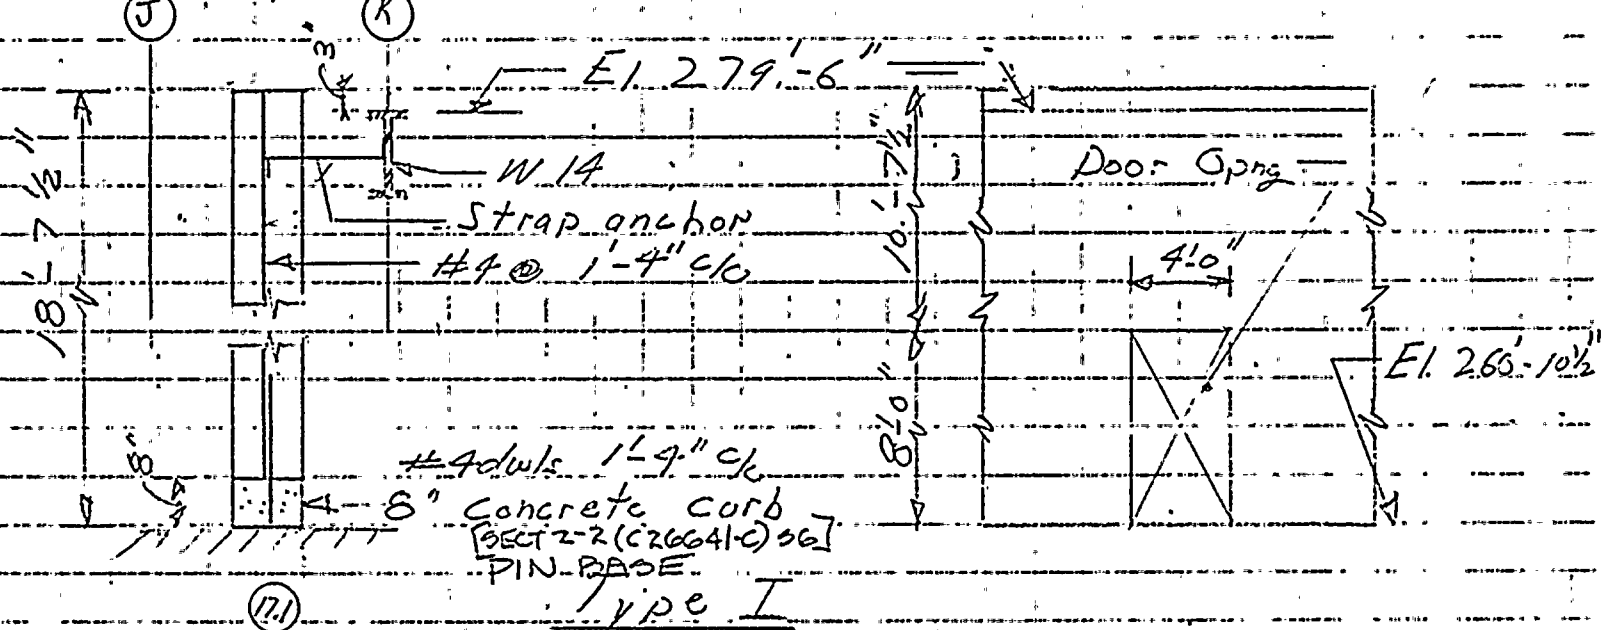 J
K
3"
El. 279'-6"
W 14
Door Opng
Strap anchor
#4 @ 1'-4" c/c
18'-7 1/2"
10'-7 1/2"
4'-0"
El. 260'-10 1/2"
8'-0"
8"
#4 dwls 1'-4" c/c
8" Concrete Curb
[SECT 2-2 (C26641-C) 36]
PIN BASE
17.1
Type I